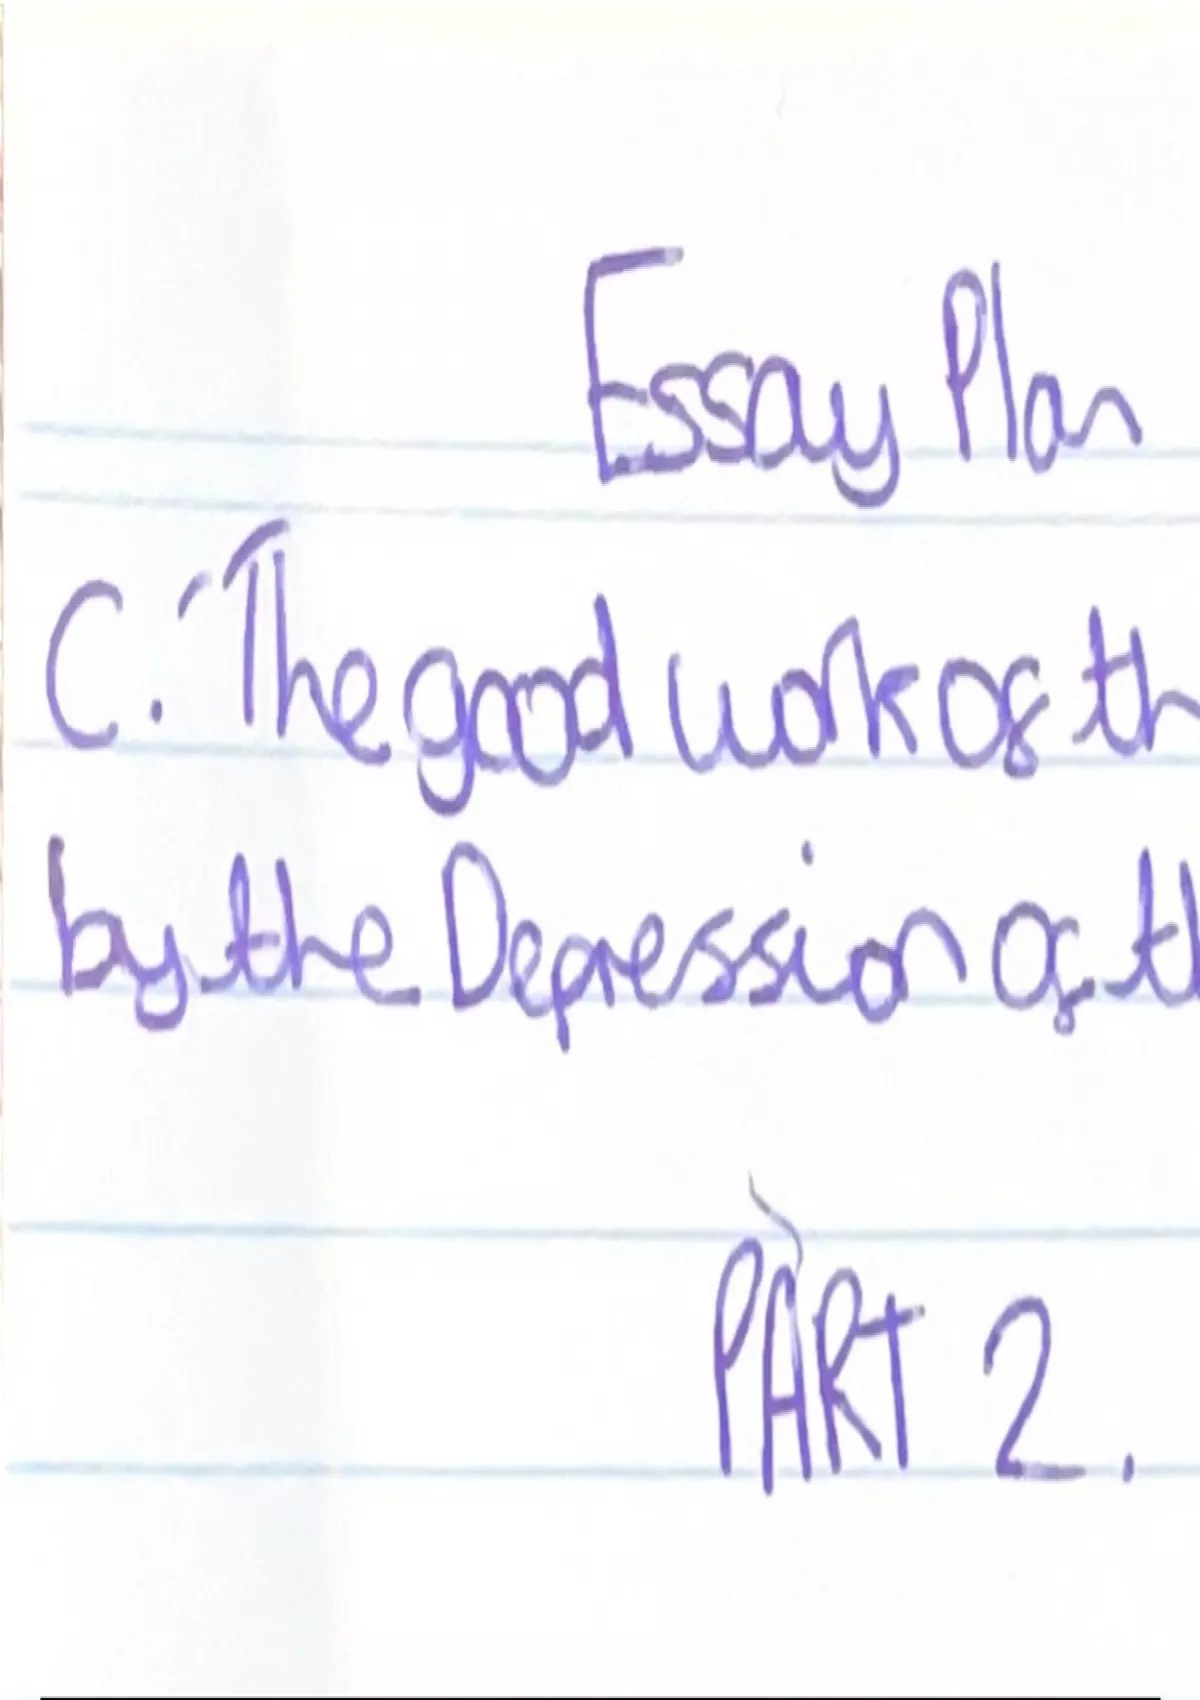 Essay Plan
C. 'The good work of th
by the Depression of th
PART 2.